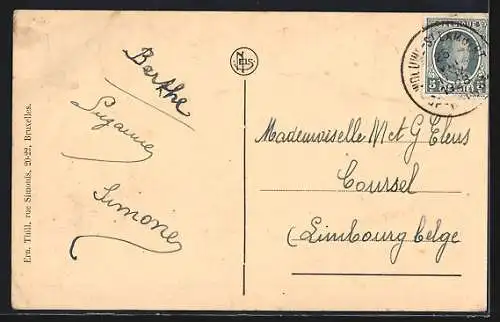 Ern. Thill, rue Simonis, 20-22, Bruxelles.
Berthe
Suzanne
Simone
NELS
Mademoiselle M et G Elens
Coursel
(Limbourg belge